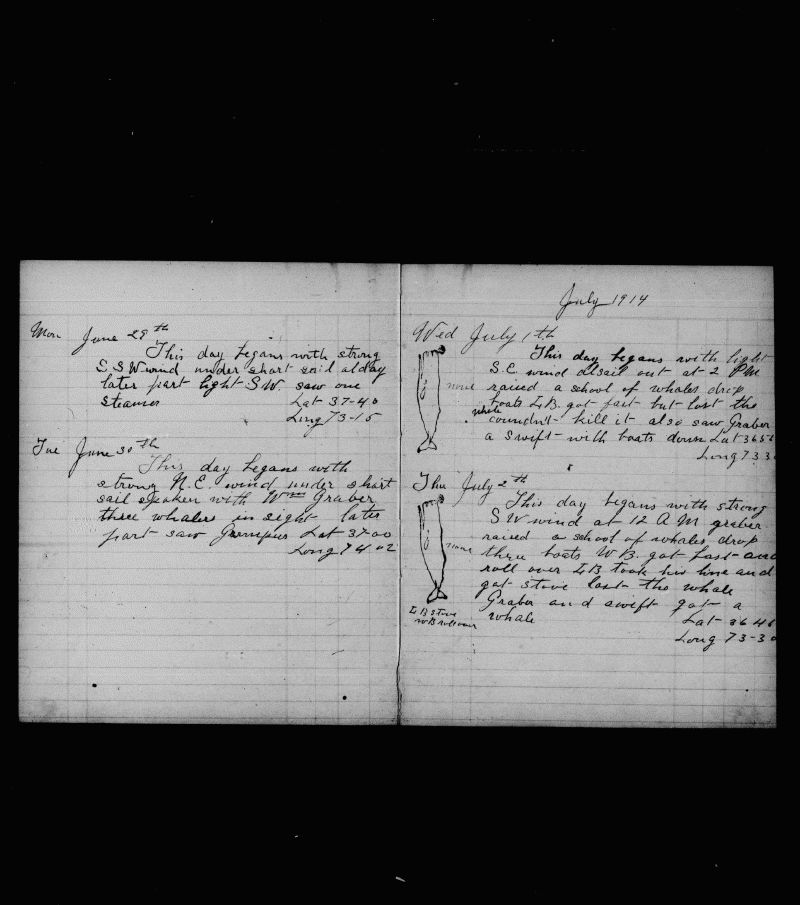 Mon June 29th
This day begans with strong
S S W wind under short sail alday
later part light S W. saw one
steamer Lat 37-40
Long 73-15
Tue June 30th
This day begans with
strong N.E. wind under short
sail speaken with Wm Graber
three whalers in sight later
part saw Grampus Lat 37-00
Long 74 02
July 1914
Wed July 1th
This day begans with light
S.E wind alsail out at 2 PM
none raised a school of whales drop
boats L.B. got fast but lost the
whale coundn't kill it also saw Graber
a swift with boats down Lat 36 5
Long 73 3
Thu July 2th
This day begans with strong
S W wind at 12 A M graber
raised a school of whales drop
none three boats W B. got fast and
roll over L B took his line and
got stove lost the whale
Graber and swift got a
L B stove whale Lat 36 4
W B rollover
Long 73-3